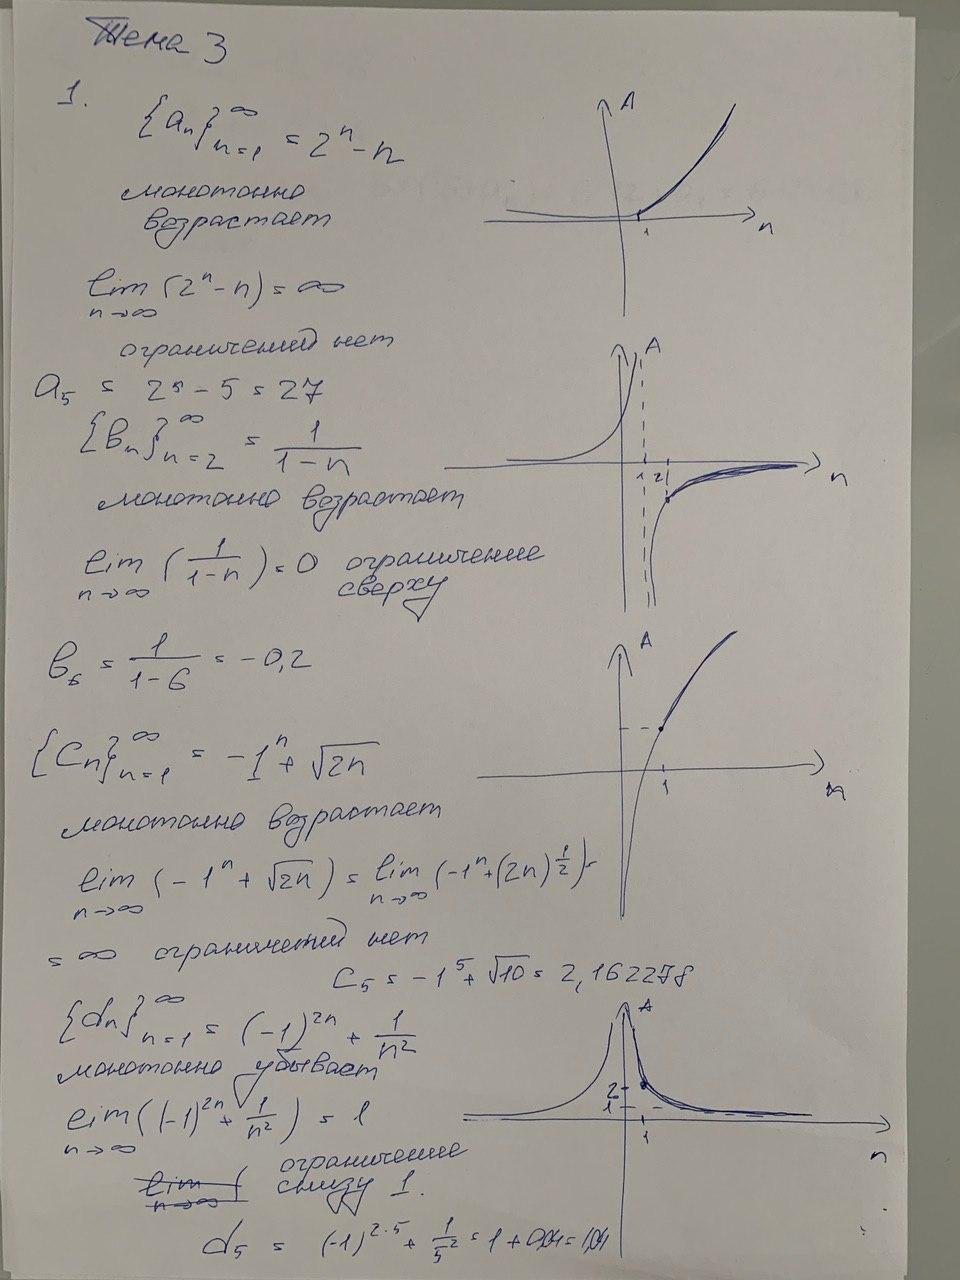 Тема 3
1.
{aₙ}ₙ₌₁^∞ = 2ⁿ - n
A
монотонно
возрастает
1
n
lim (2ⁿ - n) = ∞
n→∞
ограничений нет
A
a₅ = 2⁵ - 5 = 27
{bₙ}ₙ₌₂^∞ = 1/(1-n)
1 2
n
монотонно возрастает
lim (1/(1-n)) = 0 ограничение
n→∞
сверху
A
b₆ = 1/(1-6) = -0,2
{Cₙ}ₙ₌₁^∞ = -1ⁿ + √2n
1
n
монотонно возрастает
lim (-1ⁿ + √2n) = lim (-1ⁿ + (2n)^(1/2)) =
n→∞ n→∞
= ∞ ограничений нет
C₅ = -1⁵ + √10 = 2,162278
{dₙ}ₙ₌₁^∞ = (-1)²ⁿ + 1/n²
A
монотонно убывает
2
1
lim ((-1)²ⁿ + 1/n²) = 1
n→∞
1
n
ограничение
lim (
n→∞
снизу 1.
d₅ = (-1)^(2·5) + 1/5² = 1 + 0,04 = 1,04